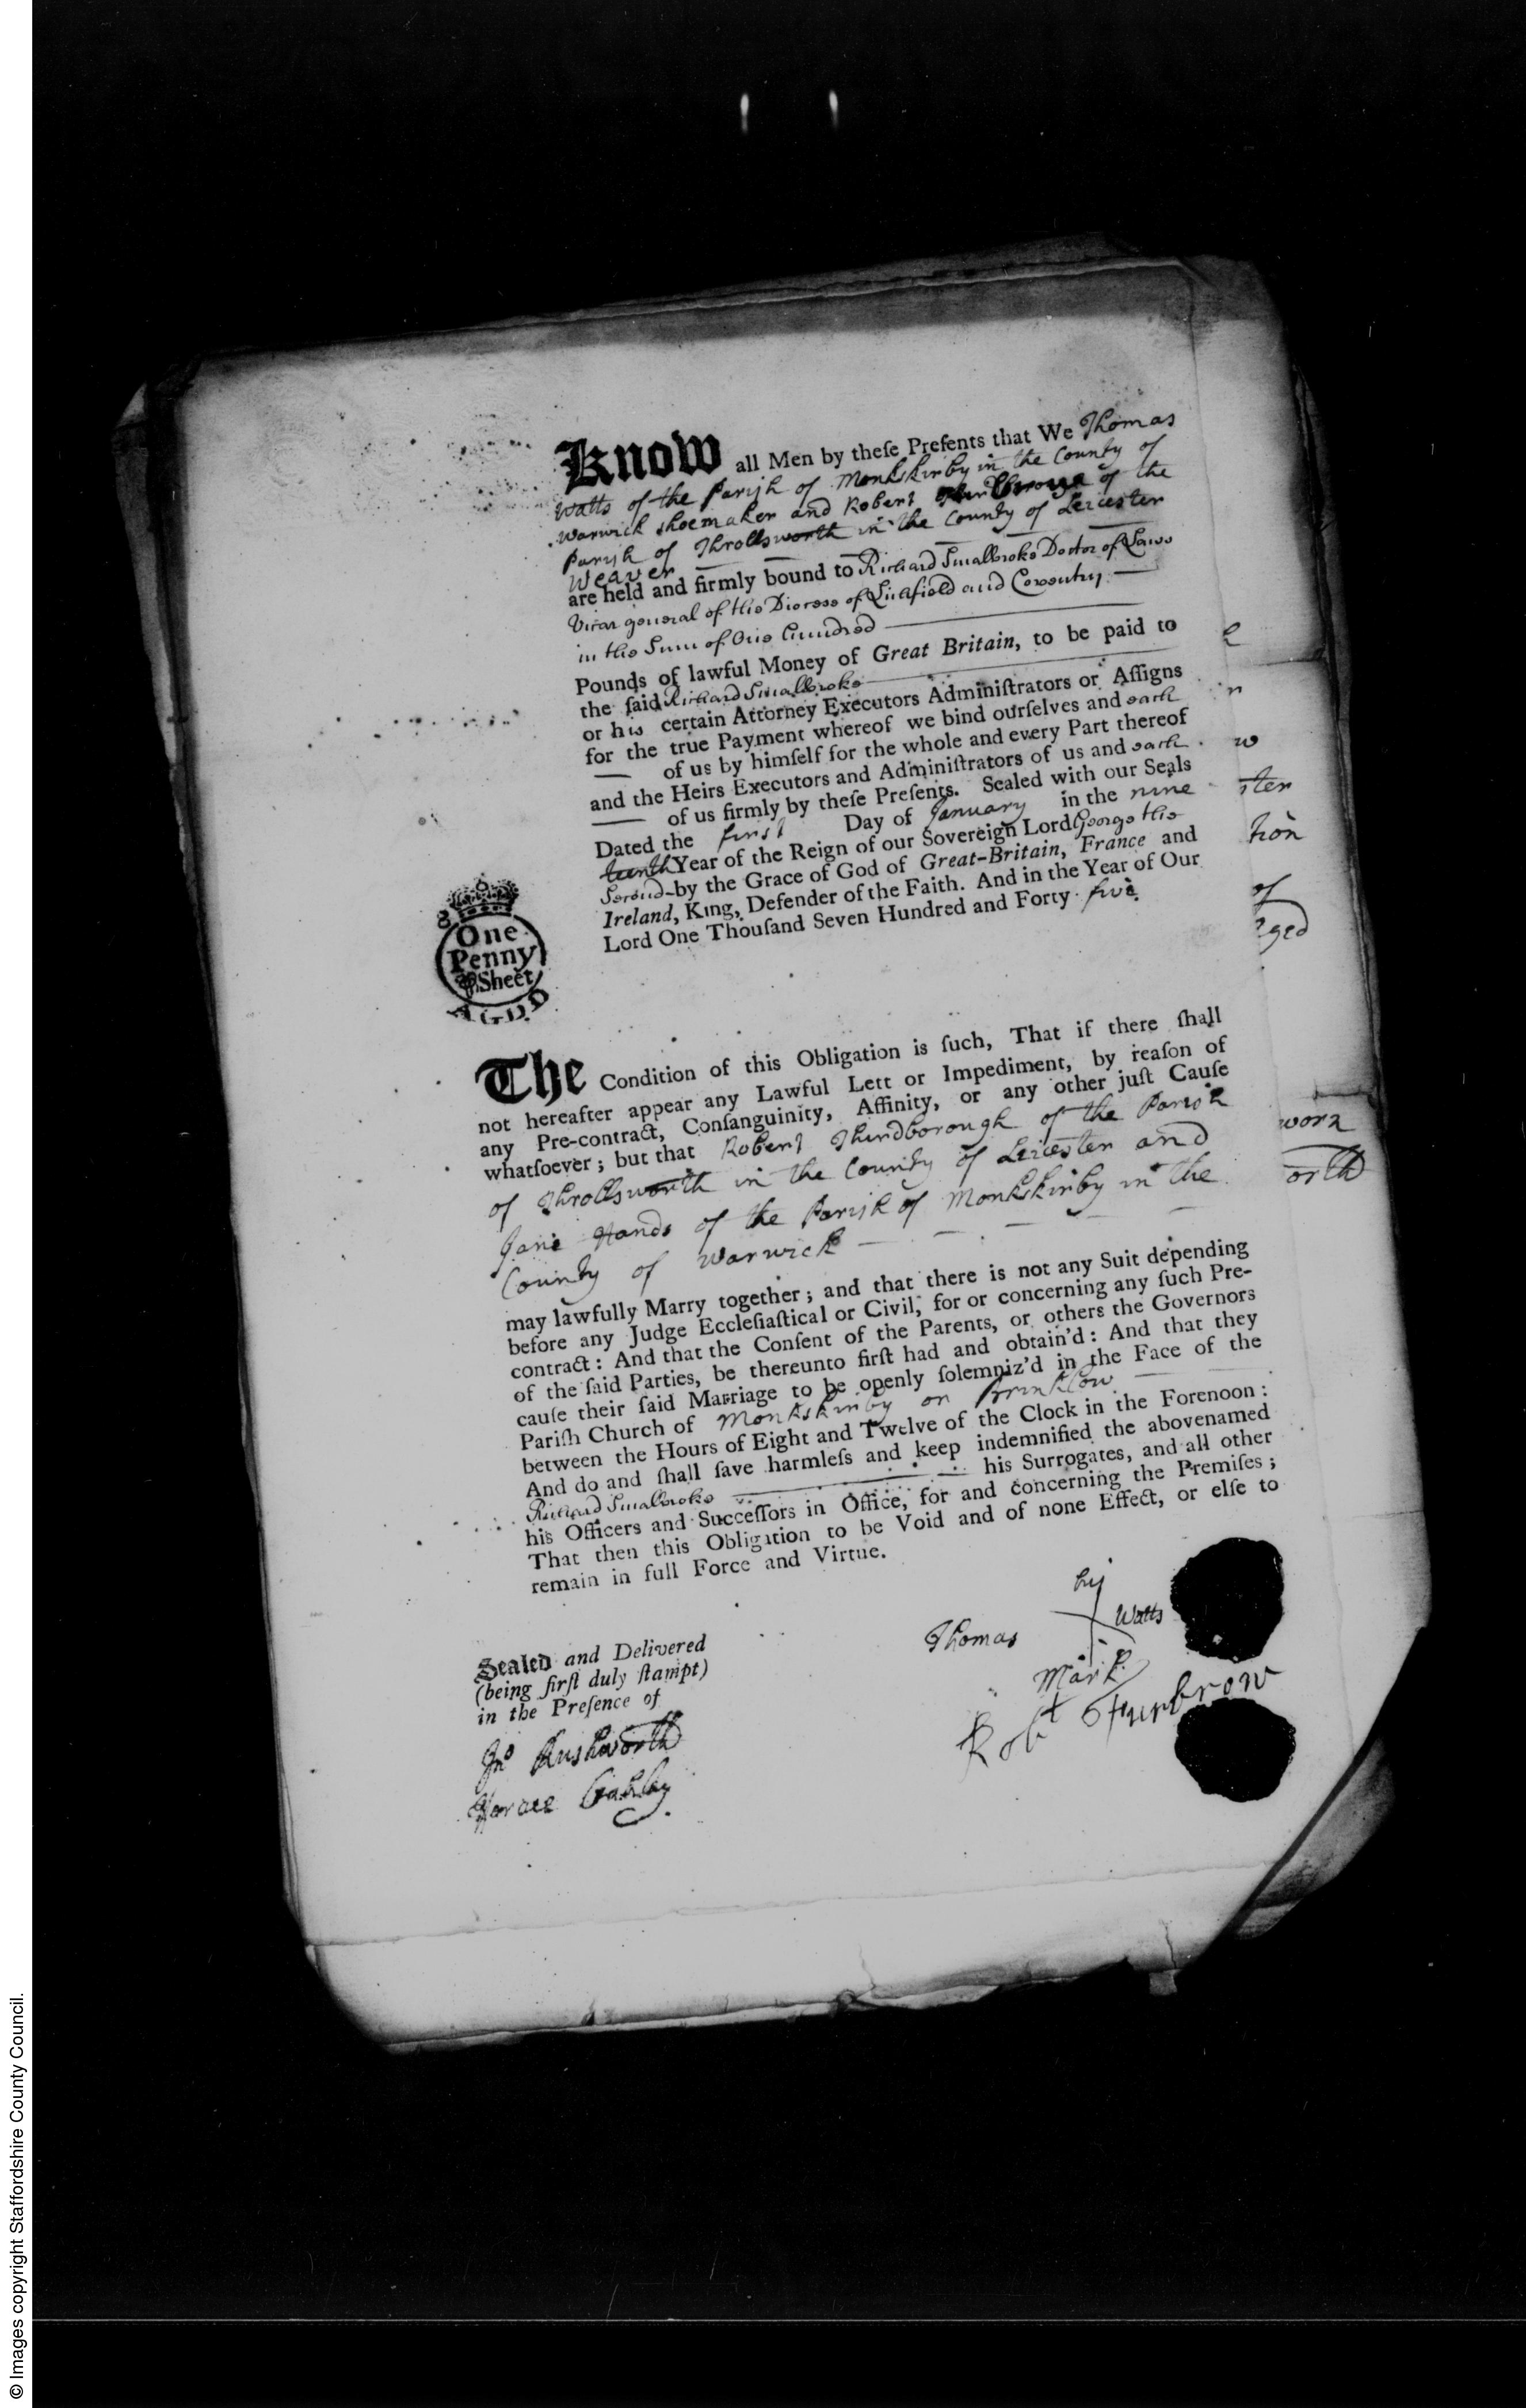 Know all Men by theſe Preſents that We Thomas
Watts of the Pariſh of Monkskirby in the County of
Warwick Shoemaker and Robert of the
Pariſh of Throllsworth in the County of Leicester
Weaver
are held and firmly bound to Richard Smalbroke Doctor of Laws
Vicar general of the Diocese of Lichfield and Coventry
in the Sum of One Hundred
Pounds of lawful Money of Great Britain, to be paid to
the ſaid Richard Smalbroke
or his certain Attorney Executors Adminiſtrators or Aſſigns
for the true Payment whereof we bind ourſelves and each
of us by himſelf for the whole and every Part thereof
and the Heirs Executors and Adminiſtrators of us and each
of us firmly by theſe Preſents. Sealed with our Seals
Dated the first Day of January in the nine
teenth Year of the Reign of our Sovereign Lord George the
Second by the Grace of God of Great-Britain, France and
Ireland, King, Defender of the Faith. And in the Year of Our
Lord One Thouſand Seven Hundred and Forty five
One
Penny
Sheet
The Condition of this Obligation is ſuch, That if there ſhall
not hereafter appear any Lawful Lett or Impediment, by reaſon of
any Pre-contract, Conſanguinity, Affinity, or any other juſt Cauſe
whatſoever; but that Robert Thirdborough of the Parish
of Throllsworth in the County of Leicester and
Jane Hands of the Pariſh of Monkskirby in the
County of Warwick
may lawfully Marry together; and that there is not any Suit depending
before any Judge Eccleſiaſtical or Civil, for or concerning any ſuch Pre-
contract: And that the Conſent of the Parents, or others the Governors
of the ſaid Parties, be thereunto firſt had and obtain'd: And that they
cauſe their ſaid Marriage to be openly ſolemniz'd in the Face of the
Pariſh Church of Monkskirby or Brinklow
between the Hours of Eight and Twelve of the Clock in the Forenoon:
And do and ſhall ſave harmleſs and keep indemnified the abovenamed
Richard Smalbroke his Surrogates, and all other
his Officers and Succeſſors in Office, for and concerning the Premiſes;
That then this Obligation to be Void and of none Effect, or elſe to
remain in full Force and Virtue.
Sealed and Delivered
(being firſt duly ſtampt)
in the Preſence of
Jno Rushworth
Horace Oakley
his
Thomas X Watts
Mark
Robt Thurbrow
© Images copyright Staffordshire County Council.